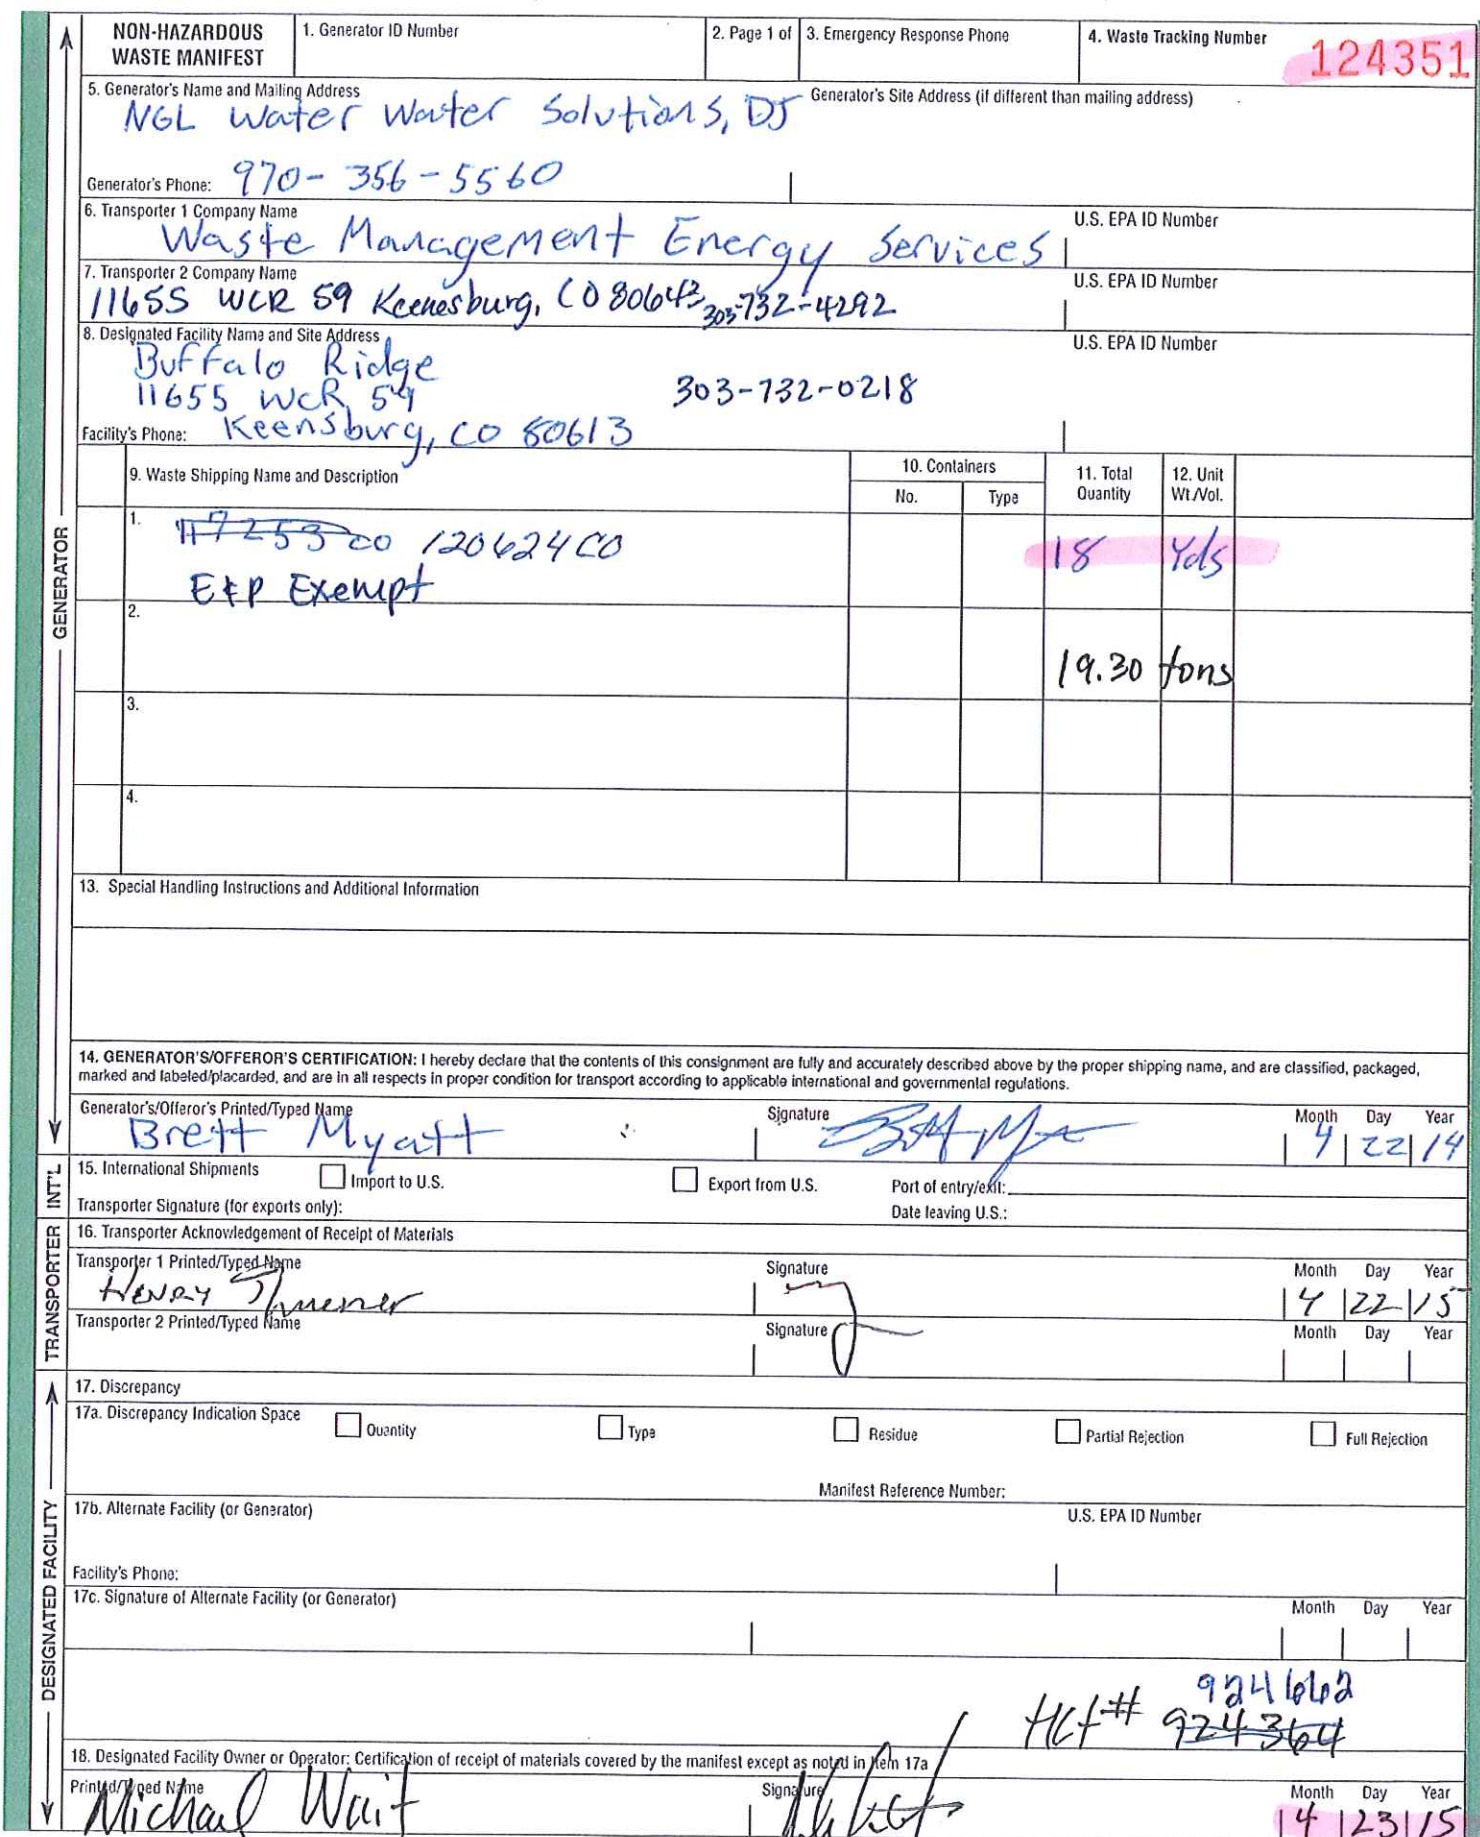 NON-HAZARDOUS WASTE MANIFEST
1. Generator ID Number
2. Page 1 of
3. Emergency Response Phone
4. Waste Tracking Number
124351
5. Generator's Name and Mailing Address
Generator's Site Address (if different than mailing address)
NGL Water Water Solutions, DJ
Generator's Phone: 970-356-5560
6. Transporter 1 Company Name
U.S. EPA ID Number
Waste Management Energy Services
7. Transporter 2 Company Name
U.S. EPA ID Number
11655 WCR 59 Keenesburg, CO 80643 303-732-4292
8. Designated Facility Name and Site Address
U.S. EPA ID Number
Buffalo Ridge
11655 WCR 59
303-732-0218
Facility's Phone: Keensburg, CO 80613
9. Waste Shipping Name and Description
10. Containers
No.
Type
11. Total Quantity
12. Unit Wt./Vol.
GENERATOR
1. 117253CO 120624CO
18 Yds
E&P Exempt
2.
19.30 tons
3.
4.
13. Special Handling Instructions and Additional Information
14. GENERATOR'S/OFFEROR'S CERTIFICATION: I hereby declare that the contents of this consignment are fully and accurately described above by the proper shipping name, and are classified, packaged,
marked and labeled/placarded, and are in all respects in proper condition for transport according to applicable international and governmental regulations.
Generator's/Offeror's Printed/Typed Name
Signature
Month Day Year
Brett Myatt
4 22 14
INT'L
15. International Shipments
Import to U.S.
Export from U.S.
Port of entry/exit:
Transporter Signature (for exports only):
Date leaving U.S.:
TRANSPORTER
16. Transporter Acknowledgement of Receipt of Materials
Transporter 1 Printed/Typed Name
Signature
Month Day Year
Henry
4 22 15
Transporter 2 Printed/Typed Name
Signature
Month Day Year
DESIGNATED FACILITY
17. Discrepancy
17a. Discrepancy Indication Space
Quantity
Type
Residue
Partial Rejection
Full Rejection
Manifest Reference Number:
17b. Alternate Facility (or Generator)
U.S. EPA ID Number
Facility's Phone:
17c. Signature of Alternate Facility (or Generator)
Month Day Year
924662
924364
18. Designated Facility Owner or Operator: Certification of receipt of materials covered by the manifest except as noted in Item 17a
Printed/Typed Name
Signature
Month Day Year
Michael Wait
4 23 15